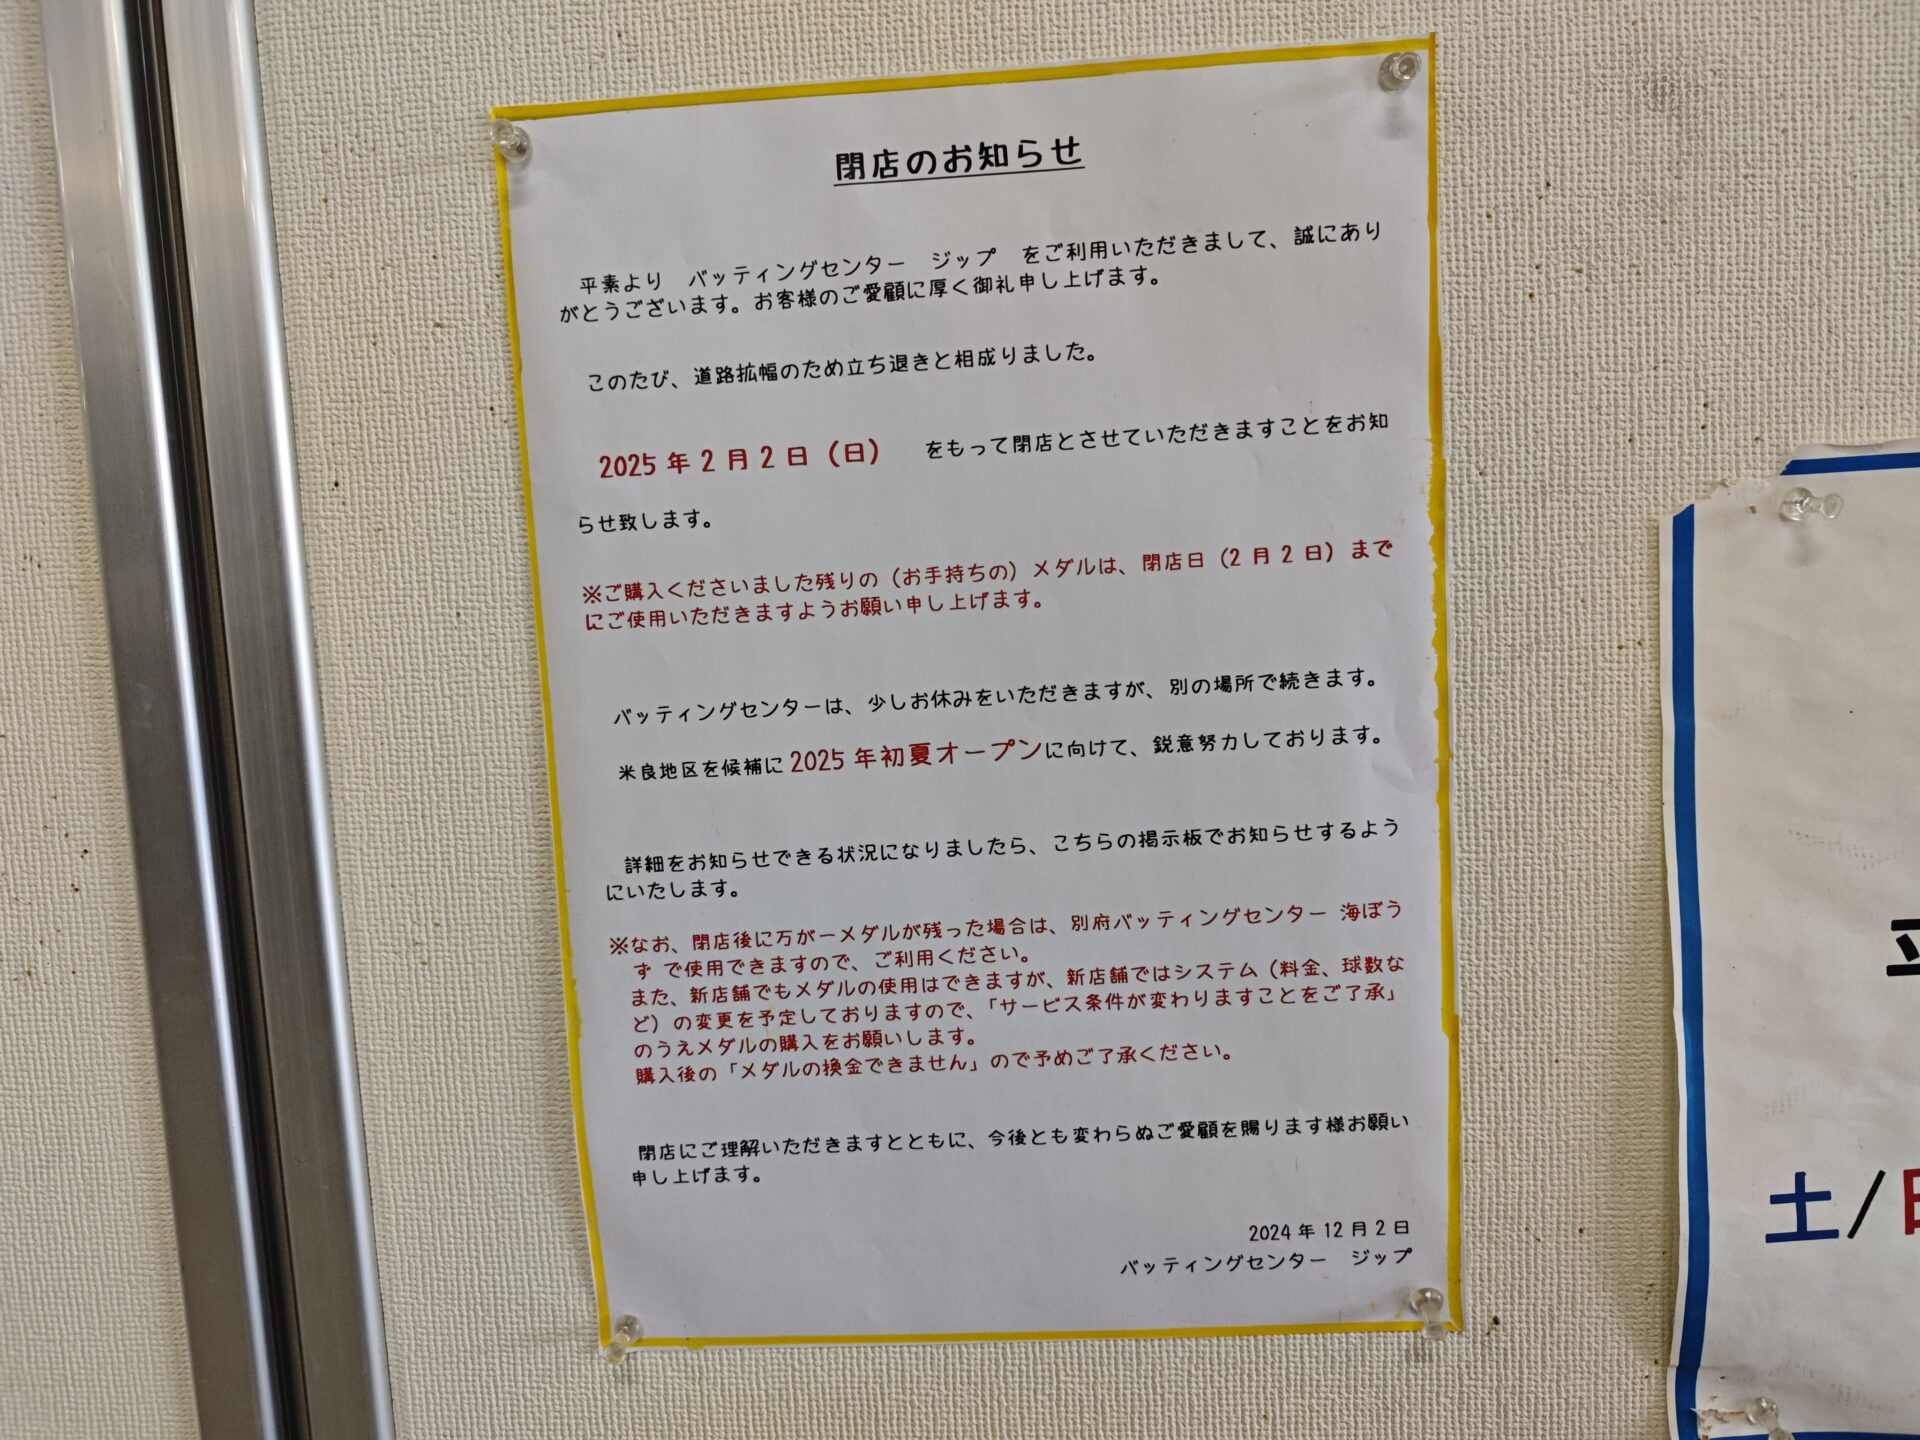 閉店のお知らせ
平素より　バッティングセンター　ジップ　をご利用いただきまして、誠にあり
がとうございます。お客様のご愛顧に厚く御礼申し上げます。
このたび、道路拡幅のため立ち退きと相成りました。
2025年2月2日（日）　をもって閉店とさせていただきますことをお知
らせ致します。
※ご購入くださいました残りの（お手持ちの）メダルは、閉店日（2月2日）まで
にご使用いただきますようお願い申し上げます。
バッティングセンターは、少しお休みをいただきますが、別の場所で続きます。
米良地区を候補に2025年初夏オープンに向けて、鋭意努力しております。
詳細をお知らせできる状況になりましたら、こちらの掲示板でお知らせするよう
にいたします。
※なお、閉店後に万が一メダルが残った場合は、別府バッティングセンター 海ぼう
ず で使用できますので、ご利用ください。
また、新店舗でもメダルの使用はできますが、新店舗ではシステム（料金、球数な
ど）の変更を予定しておりますので、「サービス条件が変わりますことをご了承」
のうえメダルの購入をお願いします。
購入後の「メダルの換金できません」ので予めご了承ください。
閉店にご理解いただきますとともに、今後とも変わらぬご愛顧を賜ります様お願い
申し上げます。
2024年12月2日
バッティングセンター　ジップ
土/